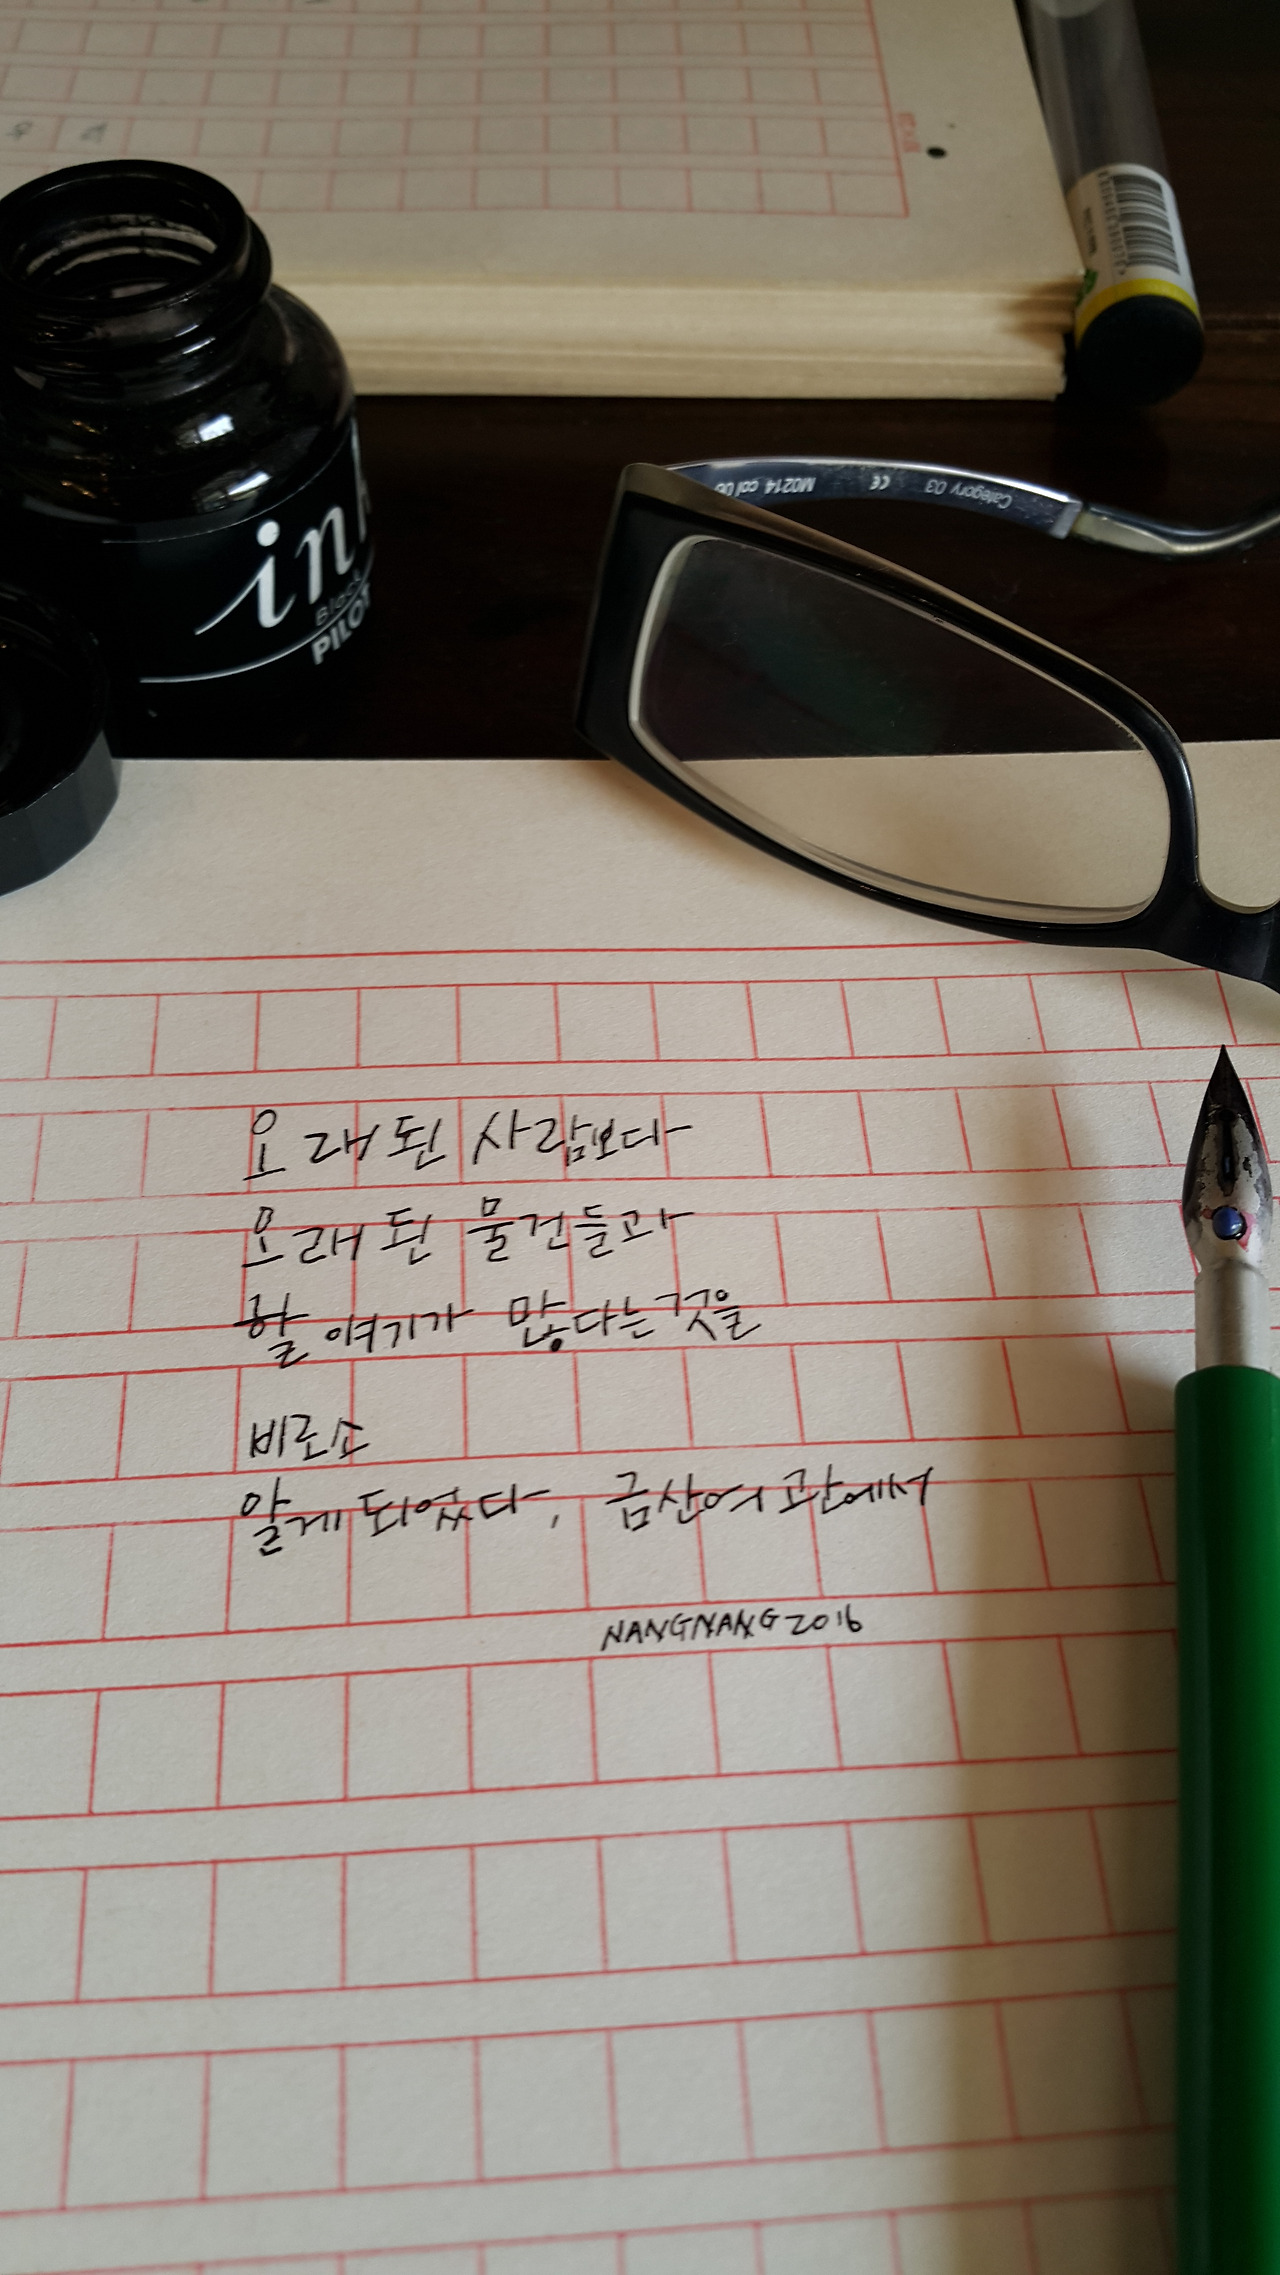 ink
Black
PILOT
Category 03 CE M0214 col 06
오래된 사람보다
오래된 물건들과
할 얘기가 많다는 것을
비로소
알게 되었다, 금산여관에서
NANGNANG 2016